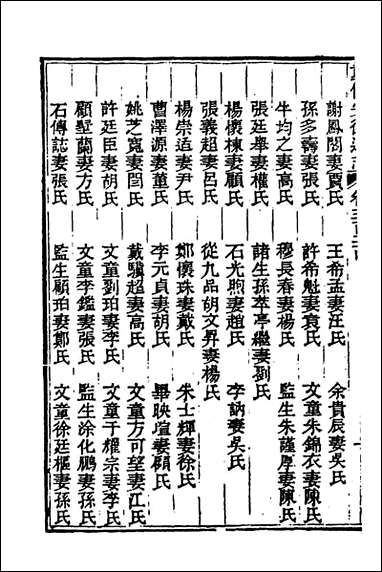 謝鳳閣妻賈氏　王希孟妻汪氏　余貴辰妻吳氏
孫多壽妻張氏　許希魁妻袁氏　文童朱錦衣妻陳氏
牛均之妻高氏　穆長春妻楊氏　監生朱謹厚妻陳氏
張廷舉妻權氏　諸生孫萃亭繼妻劉氏
楊懷棟妻顧氏　石光煦妻趙氏　李訥妻吳氏
張義超妻呂氏　從九品胡文昇妻楊氏
楊崇适妻尹氏　鄭懷珠妻戴氏　朱士輝妻徐氏
曹澤源妻董氏　李元貞妻胡氏　畢映瑄妻顧氏
姚芝寬妻閆氏　戴驥超妻高氏　文童方可望妻江氏
許廷臣妻胡氏　文童劉珀妻李氏　文童于耀宗妻李氏
顧墅蘭妻方氏　文童李鑑妻張氏　監生涂化鵬妻孫氏
石傳誌妻張氏　監生顧珀妻鄭氏　文童徐廷樞妻孫氏